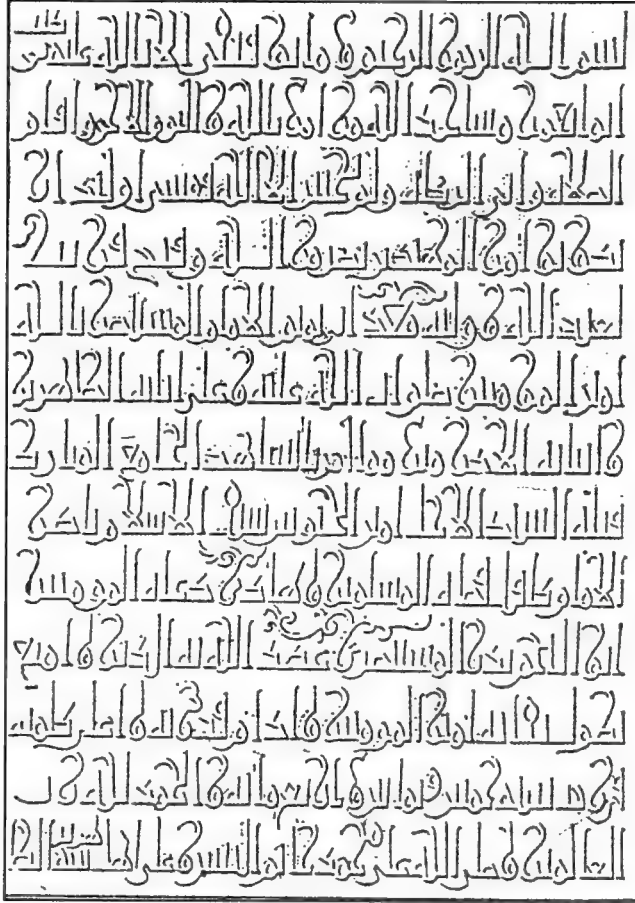 بسم الله الرحمن الرحيم وما توفيقي الا بالله عليه توكلت
انما يعمر مساجد الله من امن بالله واليوم الاخر واقام
الصلاة واتى الزكاة ولم يخش الا الله فعسى اولئك ان
يكونوا من المهتدين نصر من الله وفتح قريب
لعبد الله ووليه معد ابي تميم الامام المستنصر بالله
امير المؤمنين صلوات الله عليه وعلى ابائه الطاهرين
وابنائه الاكرمين امر بانشاء هذا الجامع المبارك
فتاه السيد الاجل امير الجيوش سيف الاسلام ناصر
الامام كافل قضاة المسلمين وهادي دعاة المؤمنين
ابو النجم بدر المستنصري عضد الله به الدين وامتع
بطول بقائه امير المؤمنين وادام قدرته واعلى كلمته
سنة الحمد لله رب
العالمين وصلى الله على محمد النبيين وعلى